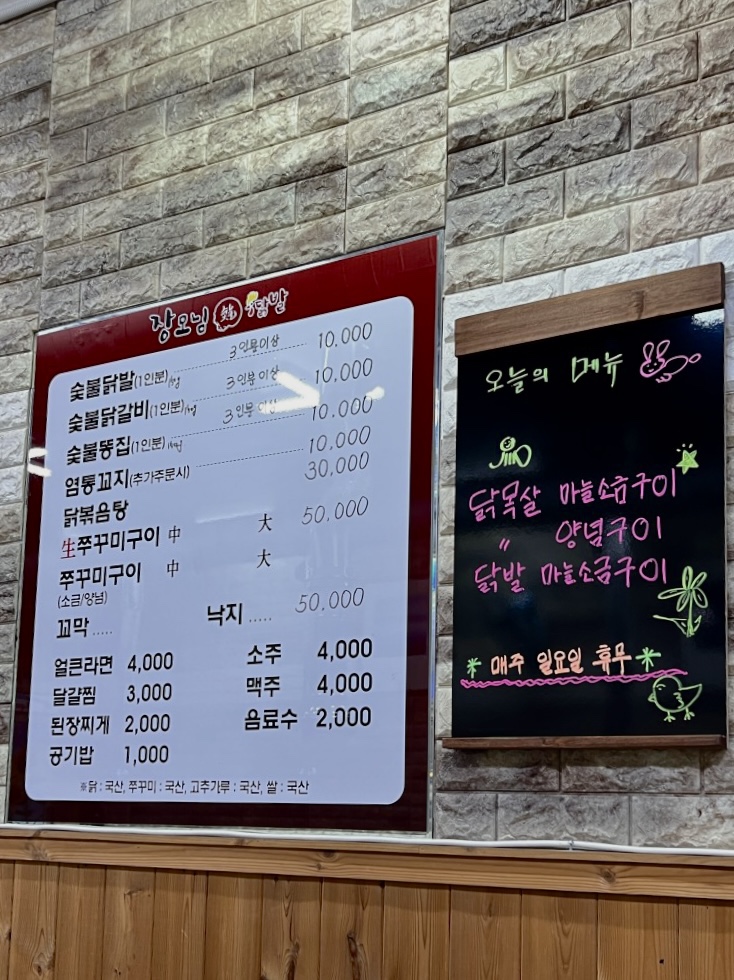 장모님 닭발
숯불닭발(1인분) 3인분이상 10,000
숯불닭갈비(1인분) 3인분이상 10,000
숯불똥집(1인분) 3인분이상 10,000
염통꼬지(추가주문시) 10,000
닭볶음탕 30,000
生쭈꾸미구이 中 大 50,000
쭈꾸미구이 中 大
(소금/양념)
꼬막 ..... 낙지 ..... 50,000
얼큰라면 4,000 소주 4,000
달걀찜 3,000 맥주 4,000
된장찌게 2,000 음료수 2,000
공기밥 1,000
※닭 : 국산, 쭈꾸미 : 국산, 고추가루 : 국산, 쌀 : 국산
오늘의 메뉴
닭목살 마늘소금구이
〃 양념구이
닭발 마늘소금구이
매주 일요일 휴무